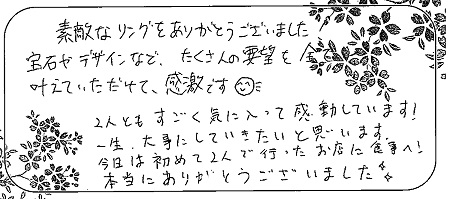 素敵なリングをありがとうございました
宝石やデザインなど、たくさんの要望を全
叶えていただけて、感激です
2人ともすごく気に入って感動しています!
一生、大事にしていきたいと思います。
今日は初めて2人で行ったお店に食事へ!
本当にありがとうございました